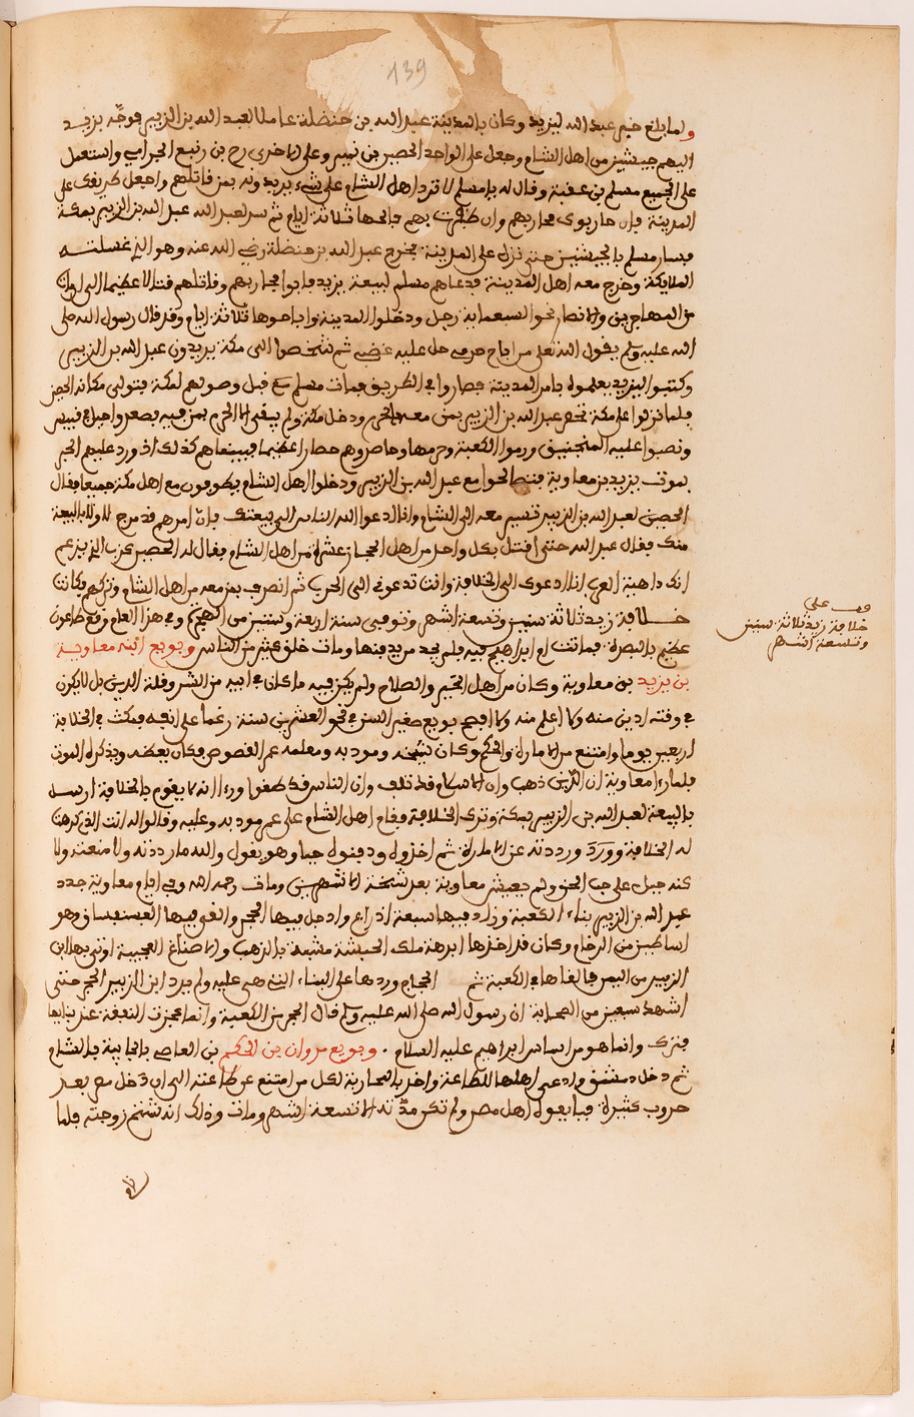 139
ولما بلغ خبر عبد الله ليزيد وكان بالمدينة عبد الله بن حنضلة عاملا لعبد الله بن الزبير فوجّه يزيد
اليهم جيشين من اهل الشام وجعل على الواحد الحصين بن نمير وعلى الاخرى روح بن زنبع الجرامي واستعمل
على الجميع مسلم بن عقبة وقال له يا مسلم لا ترد اهل الشام على شيء يريدونه بمن قاتلهم واجعل طريقك على
المدينة فإن حاربوك فحاربهم وان ظفرت بهم فابحها ثلاثة ايام ثم سر لعبد الله عبد الله بن الزبير بمكة
فسار مسلم بالجيشين حتى نزل على المدينة فخرج عبد الله بن حنضلة رضي الله عنه وهو الذي غسلته
الملايكة وخرج معه اهل المدينة فدعاهم مسلم لبيعة يزيد فابوا فحاربهم وقاتلهم قتالا عظيما الى ان مات
من المهاجرين والانصار نحو السبعماية رجل ودخلوا المدينة واباحوها ثلاثة ايام وقد قال رسول الله صلى
الله عليه وسلم يقول الله تعلى من اباح حرمي حل عليه غضبي ثم شخصوا الى مكة يريدون عبد الله بن الزبير
وكتبوا ليزيد يعلموه بامر المدينة فصاروا في الطريق فمات مسلم مع قبل وصولهم لمكة فتولى مكانه الحصين
فلما نزلوا على مكة تحصر عبد الله بن الزبير بمن معه بالحرم ودخل مكة ولم يبقى الا الحرم بمن فيه فصعدوا جبل ابي قبيس
ونصبوا عليه المنجنيق ورموا الكعبة وحرمها وحاصروهم حصارا عظيما فبينما هم كذلك اذ ورد عليهم الخبر
بموت يزيد بن معاوية فتصالحوا مع عبد الله بن الزبير ودخلوا اهل الشام يطوفون مع اهل مكة جميعا فقال
الحصين لعبد الله بن الزبير تسير معه الى الشام وانا ادعوا الله الناس الى بيعتك فانّ امرهم قد مرج
منك فقال عبد الله حتى اقتل بكل واحد من اهل الحجاز عشرة من اهل الشام فقال له الحصين كذب الذي زعم
انك داهية العرب انا ادعوك الى الخلافة وانت تدعوني الى الحرب ثم انصرف بمن معه من اهل الشام وتركهم وكانت
خلافة يزيد ثلاثة سنين وتسعة اشهر وتوفي سنة اربعة وستين من الهجرة وفي هذا العام وقع طاعون
عظيم بالبصرة فماتت ام ابراهيم فيه فلم يجد من يدفنها ومات خلق كثير من الناس وبويع ابنه معاوية
بن يزيد بن معاوية وكان من اهل الخير والصلاح ولم يكن فيه ما كان في ابيه من الشر وقلة الدين بل لا يكون
في وقته ادين منه ولا اعلم منه ولا افصح بويع صغير السن في نحو العشرين سنة رغما على انفه فمكث في الخلافة
اربعين يوما وامتنع من الامارة والحكم وكان شيخه ومودبه ومعلمه عمر القصوص فكان يعظه ويذكره الموت
فلما رءا معاوية ان الدّين ذهب وان الاسلام قد تلف وان الناس قد طغوا ورءا انه لا يقوم بالخلافة ارسل
بالبيعة لعبد الله بن الزبير بمكة وترك الخلافة فقام اهل الشام على عمر مودبه وعليه وقالوا له انت الذي كرهت
له الخلافة ووردّ ورددته عن الامارة ثم اخذوه ودفنوه حيا وهو يقول والله ما رددته ولا منعته ولا
كنه جبل على حب الحق ولم يعيش معاوية بعد شيخه الا شهرين ومات رحمه الله وفي ايام معاوية جدد
عبد الله بن الزبير بناء الكعبة وزاد فيها سبعة اذراع وادخل فيها الحجر والقى فيها الفسيفسا وهو
اساطين من الرخام وكان قد اخذها ابرهة ملك الحبشة مشبة بالذهب والاصناغ العجيبة اوتي بها لابن
الزبير من اليمن فالقاها في الكعبة ثم الحجاج وردها على البناء التي هي عليه ولم يرد ابن الزبير الحجر حتى
اشهد سبعين من الصحابة ان رسول الله صلى الله عليه وسلم قال الحجر من الكعبة وانما عجزت النفقة عند بنايها
فترك وانما هو من اساس ابراهيم عليه السلام . وبويع مروان بن الحكم بن العاصي بالجابية بالشام
ثم دخل دمشق ودعى اهلها للطاعة واخذ بالمحاربة لكل من امتنع عن طاعته الى ان دخل مصر بعد
حروب كثيرة فبايعوه اهل مصر ولم تكن مدّته الا تسعة اشهر ومات وذلك انه شتم زوجته فلما
قف على
خلافة يزيد ثلاثة سنين
وتسعة اشهر